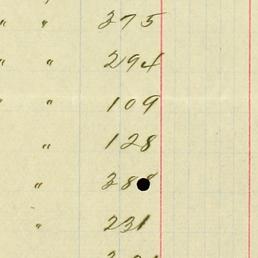 " " 375
" " 294
" " 109
" 128
"
" 231